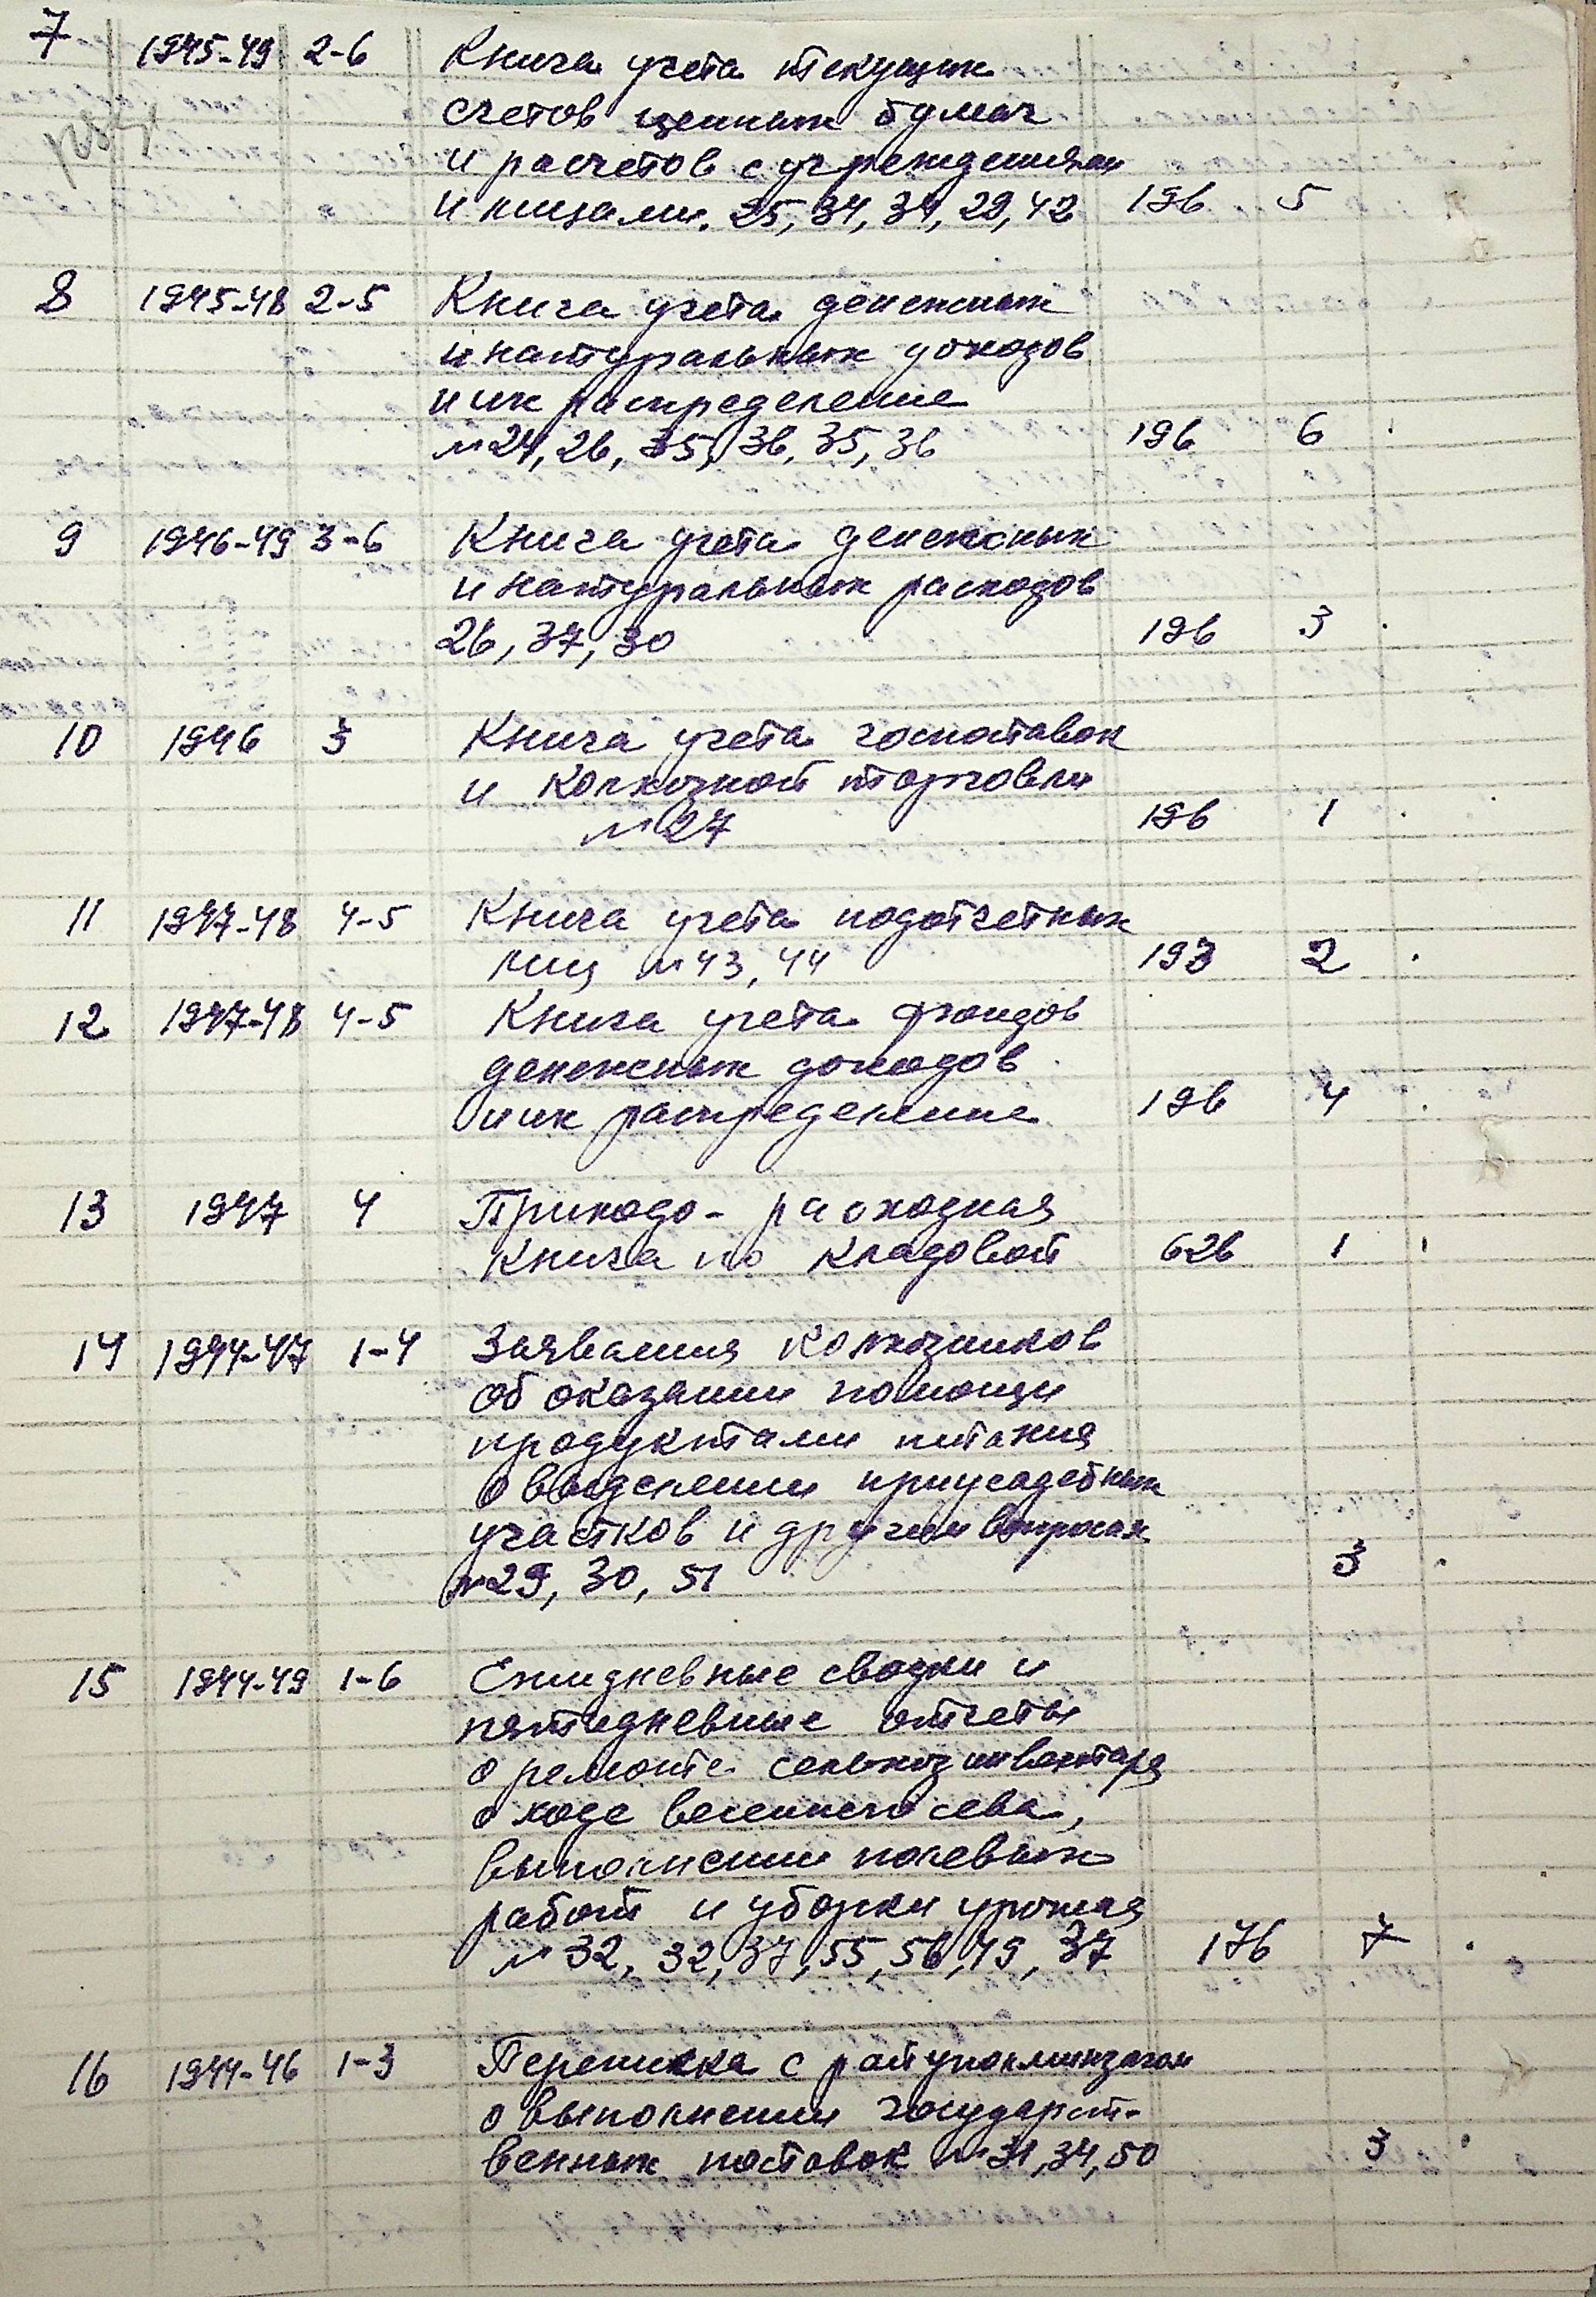 7 1945-49 2-6 Книга учета текущих
счетов ценных бумаг
и расчетов с учреждениями
и лицами. 25, 34, 39, 29, 42 196 5
8 1945-48 2-5 Книга учета денежных
и натуральных доходов
и их распределение
№ 24, 26, 35, 36, 35, 36 196 6
9 1946-49 3-6 Книга учета денежных
и натуральных расходов
26, 37, 30 196 3
10 1946 3 Книга учета госпоставок
и колхозной торговли
№ 27 196 1
11 1947-48 4-5 Книга учета подотчетных
лиц № 43, 44 193 2
12 1947-48 4-5 Книга учета фондов
денежных доходов
и их распределение 196 4
13 1947 4 Приходо- расходная
книга по кладовой 626 1
14 1944-47 1-4 Заявления колхозников
об оказании помощи
продуктами питания
о выделении приусадебных
участков и другим вопросам
№ 29, 30, 51 3
15 1944-49 1-6 Ежидневные сводки и
пятидневные отчеты
о ремонте сельхозинвентаря
о ходе весеннего сева,
выполнении полевых
работ и уборки урожая
№ 32, 32, 37, 55, 56, 49, 37 176 7
16 1944-46 1-3 Переписка с райуполминзагом
о выполнении государст-
венных поставок № 31, 34, 50 3